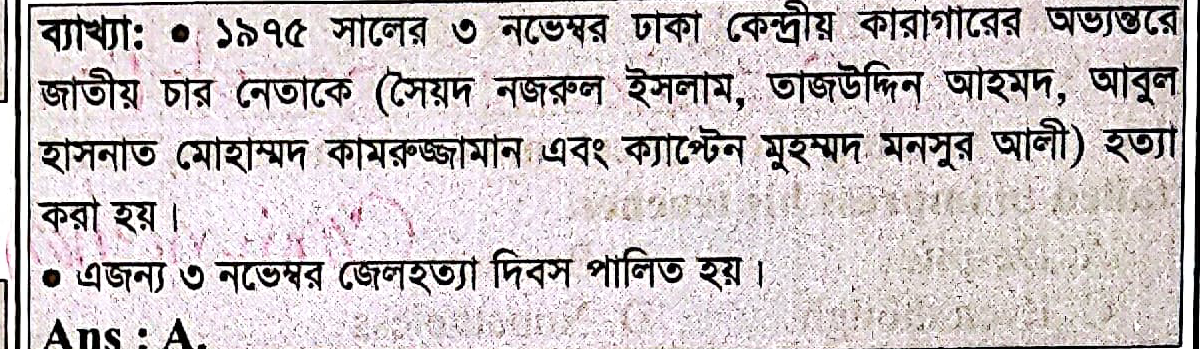 ব্যাখ্যা: ● ১৯৭৫ সালের ৩ নভেম্বর ঢাকা কেন্দ্রীয় কারাগারের অভ্যন্তরে
জাতীয় চার নেতাকে (সৈয়দ নজরুল ইসলাম, তাজউদ্দিন আহমদ, আবুল
হাসনাত মোহাম্মদ কামরুজ্জামান এবং ক্যাপ্টেন মুহম্মদ মনসুর আলী) হত্যা
করা হয়।
● এজন্য ৩ নভেম্বর জেলহত্যা দিবস পালিত হয়।
Ans : A.